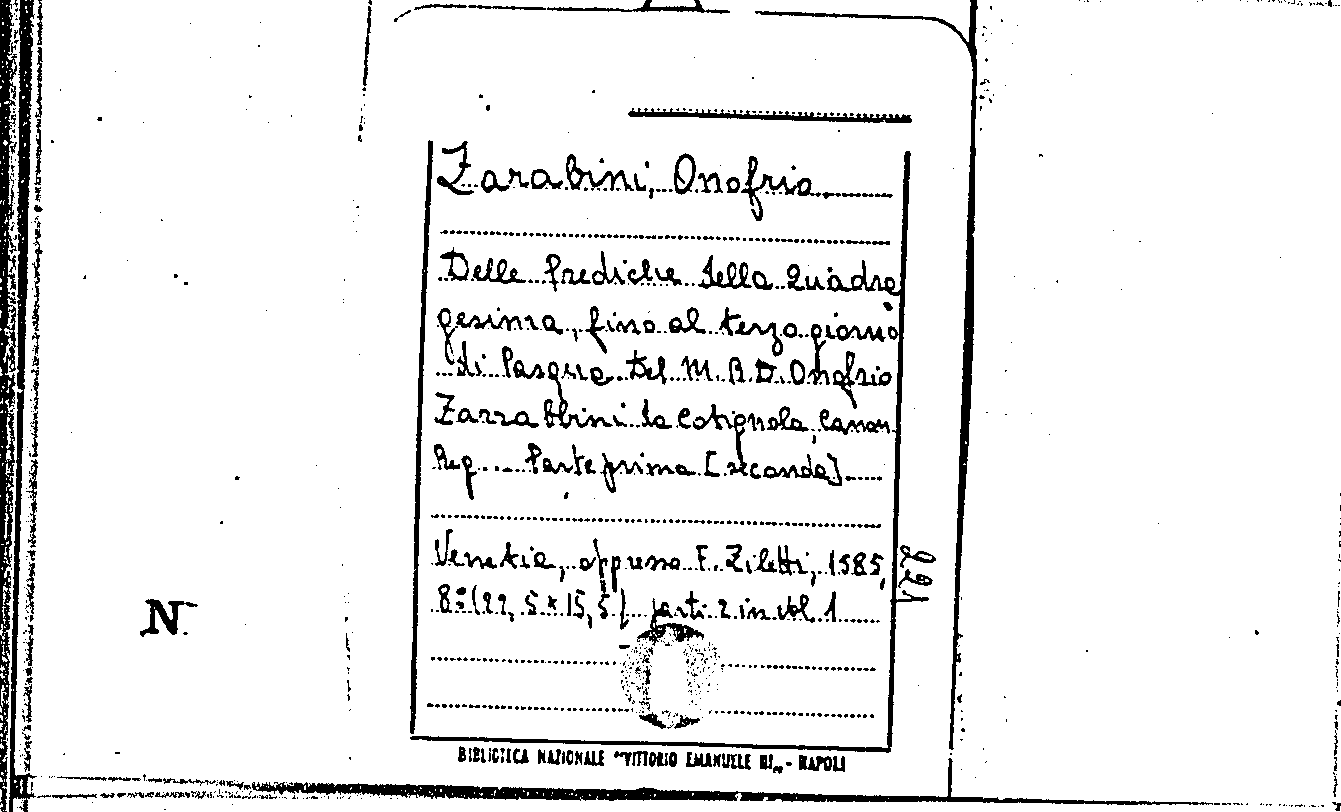 Zarabini, Onofrio.
Delle prediche della Quadra
gesima, fino al terzo giorno
di Pasqua Del M. R. D. Onofrio
Zarrabbini da Cotignola, Canon.
Reg... Parte prima [seconda]
Venetia, appresso F. Ziletti, 1585,
8º (22, 5 x 15, 5) parti 2 in vol. 1
221
N
BIBLIOTECA NAZIONALE "VITTORIO EMANUELE III„ - NAPOLI